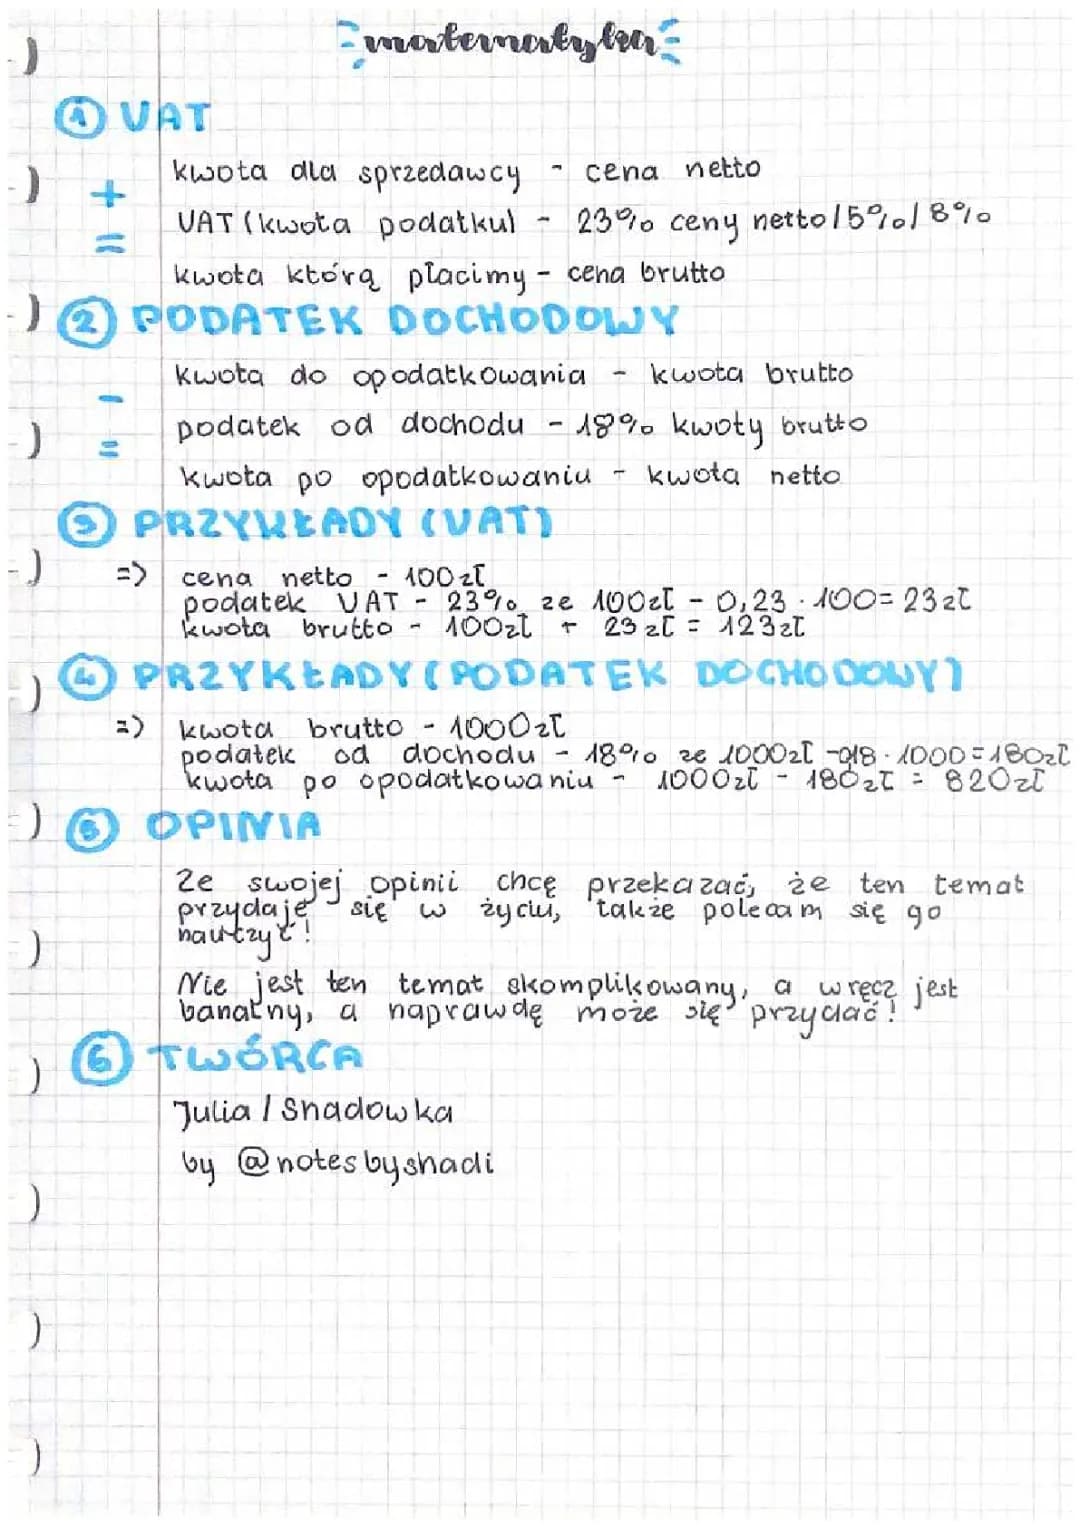 matematyka
1 VAT
kwota dla sprzedawcy - cena netto
+
VAT (kwota podatku) - 23% ceny netto/5%/8%
=
kwota którą płacimy - cena brutto
2 PODATEK DOCHODOWY
kwota do opodatkowania - kwota brutto
-
podatek od dochodu - 18% kwoty brutto
=
kwota po opodatkowaniu - kwota netto
3 PRZYKŁADY (VAT)
=) cena netto - 100zł
podatek VAT - 23% ze 100zł - 0,23 · 100= 23zł
kwota brutto - 100zł + 23zł = 123zł
4 PRZYKŁADY (PODATEK DOCHODOWY)
=) kwota brutto - 1000zł
podatek od dochodu - 18% ze 1000zł -0,18 · 1000=180zł
kwota po opodatkowaniu - 1000zł - 180zł = 820zł
5 OPINIA
Ze swojej opinii chcę przekazać, że ten temat
przydaje się w życiu, także polecam się go
nauczyć!
Nie jest ten temat skomplikowany, a wręcz jest
banalny, a naprawdę może się przydać!
6 TWÓRCA
Julia / Shadowka
by @notesbyshadi